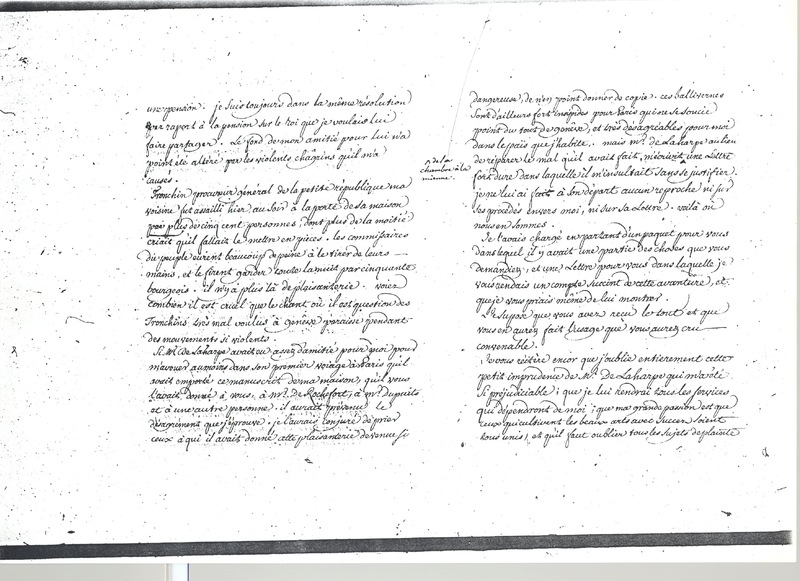 une pension. je suis toujours dans la même résolution
par raport à la pension sur le roi que je voulais lui
faire partager. Le fond de mon amitié pour lui n'a
point été altéré par les violents chagrins qu'il m'a
causés.
Tronchin procureur général de la petite république ma
voisine fut assailli hier au soir à la porte de sa maison
par plus de cinq cent personnes, dont plus de la moitié
criait qu'il fallait le mettre en pièces. les commissaires
du peuple eurent beaucoup de peine à le tirer de leurs
mains, et le firent garder toute la nuit par cinquante
bourgeois. il n'y a plus là de plaisanterie. voiez
combien il est cruel que le chant où il est question des
Tronchins très mal voulus à genêve paraisse pendant
des mouvements si violents.
Si Mr. de Laharpe avait eu assez d'amitié pour moi pour
m'avouer au moins dans son premier voiage à Paris qu'il
avait emporté ce manuscrit de ma maison, qu'il vous
l'avait donné à vous, à mr. de Rochefort, à mr. dupuits
et à une autre personne. il aurait prévenu le
désagrément que j'éprouve. je l'aurais conjuré de prier
ceux à qui il avait donné cette plaisanterie devenue si
dangereuse, de n'en point donner de copie. ces balivernes
sont d'ailleurs fort insipides pour Paris qui ne se soucie
point du tout de genêve, et très désagréables pour moi
dans le païs que j'habite. mais mr. de Laharpe au lieu
de la
chambre à la
mienne.
de réparer le mal qu'il avait fait, m'écrivit une Lettre
fort dure dans laquelle il m'insultait sans se justifier.
je ne lui ai fait à son départ aucun reproche ni sur
ses procédés envers moi, ni sur sa Lettre. voilà où
nous en sommes.
Je l'avais chargé en partant d'un paquet pour vous
dans lequel il y avait une partie des choses que vous
demandiez, et une Lettre pour vous dans laquelle je
vous rendais un compte succint de cette avanture, et
que je vous priais même de lui montrer.
Je supose que vous avez reçu le tout et que
vous en aurez fait l'usage que vous aurez cru
convenable.
Je vous réitère encor que j'oublie entièrement cette
petite imprudence de Mr. De Laharpe qui m'a été
si préjudiciable; que je lui rendrai tous les services
qui dépendront de moi; que ma grande passion est que
ceux qui cultivent les beaux arts avec succez soient
tous unis, et qu'il faut oublier tous les sujets de plainte